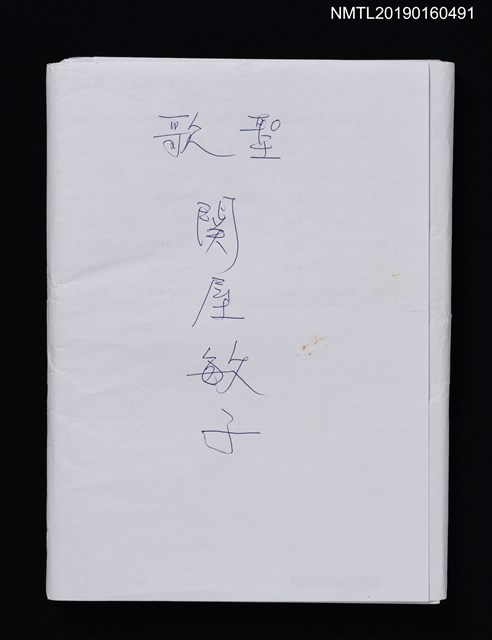 NMTL20190160491
歌聖
関屋敏子